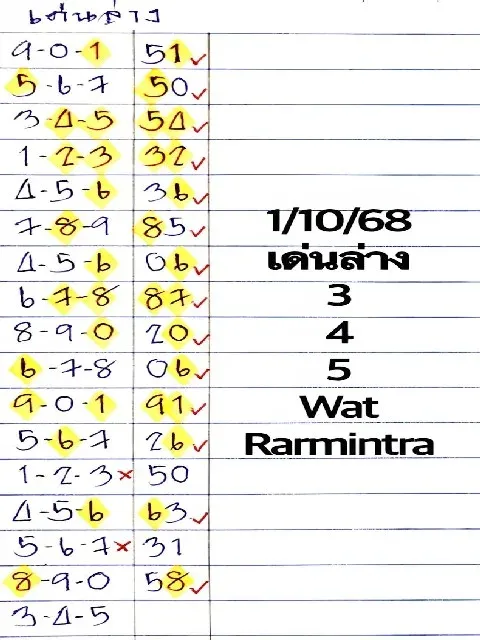 เด่นล่าง
9-0-1 51✓
5-6-7 50✓
3-4-5 54✓
1-2-3 32✓
4-5-6 36✓
7-8-9 85✓
4-5-6 06✓
6-7-8 87✓
8-9-0 20✓
6-7-8 06✓
9-0-1 91✓
5-6-7 26✓
1-2-3× 50
4-5-6 63✓
5-6-7× 31
8-9-0 58✓
3-4-5
1/10/68
เด่นล่าง
3
4
5
Wat
Rarmintra